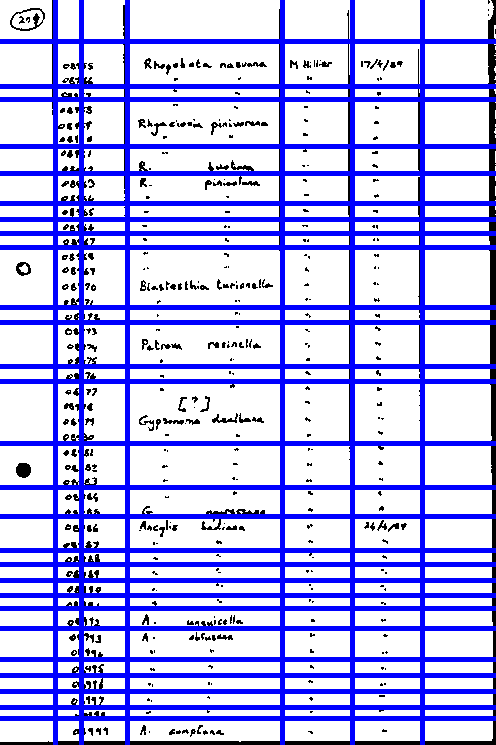 08955 Rhopobota naevana M Hillier 17/4/89
08956 " " " "
08957 " " " "
08958 " " " "
08959 Rhyacionia pinivorana " "
08960 " " " "
08961 " " "
08962 R. buoliana " "
08963 R. pinicolana " "
08964 " " " "
08965 " " " "
08966 " " " "
08967 " " " "
08968 " " " "
08969 " " " "
08970 Blastesthia turionella " "
08971 " " " "
08972 " " " "
08973 " " " "
08974 Petrova resinella " "
08975 " " " "
08976 " " " "
08977 " " " "
08978 [?] " "
08979 Gypsonoma dealbana " "
08980 " " " "
08981 " " " "
08982 " " " "
08983 " " " "
08984 " " " "
08985 G. " "
08986 Ancylis badiana " 24/4/89
08987 " " " "
08988 " " " "
08989 " " " "
08990 " " " "
08991 " " " "
08992 A. unguicella " "
08993 A. obtusana " "
08994 " " " "
08995 " " " "
08996 " " " "
08997 " " " "
08998 " " " "
08999 A. comptana " "